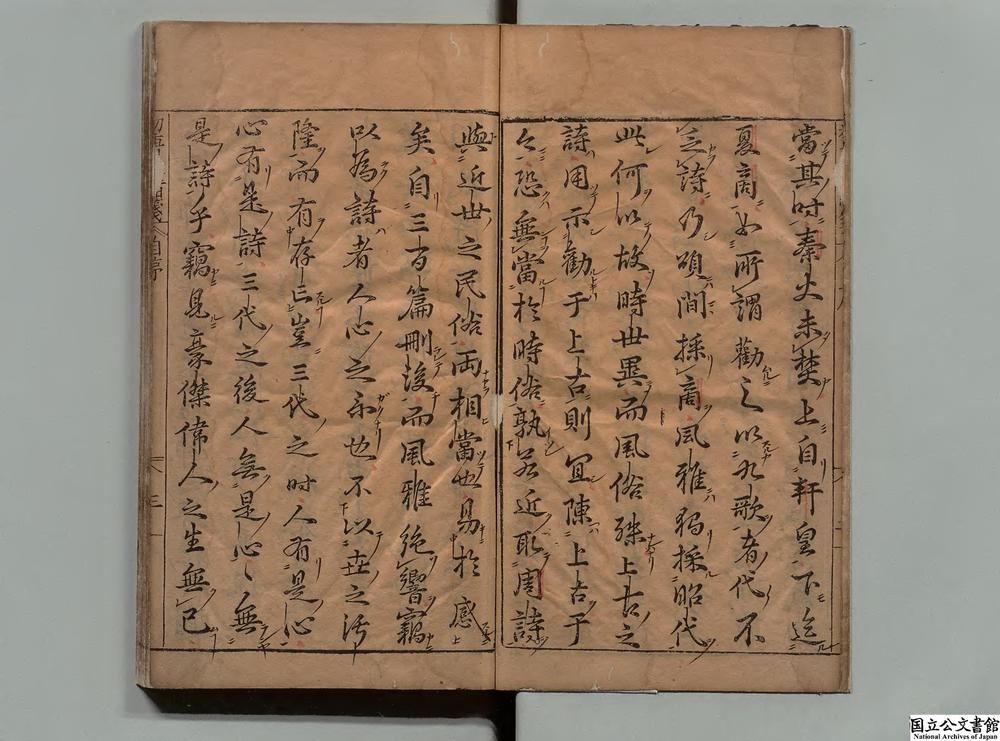 當其时秦火未焚上自軒皇下迄
夏商如所謂勸之以九歌者代不
乏詩乃頌間採商風雅獨採昭代
此何以故時世異而風俗殊上古之
詩用示勸于上古則宜陳上古于
今恐無當於時俗孰若近取周詩
與近世之民俗兩相當也易於感
矣自三百篇刪後而風雅絶響竊
以為詩者人心之所也不以世之污
隆而有存亡豈三代之时人有是心
心有是詩三代之後人無是心〻無
是詩乎竊見豪傑偉人之生無已
三
国立公文書館
National Archives of Japan